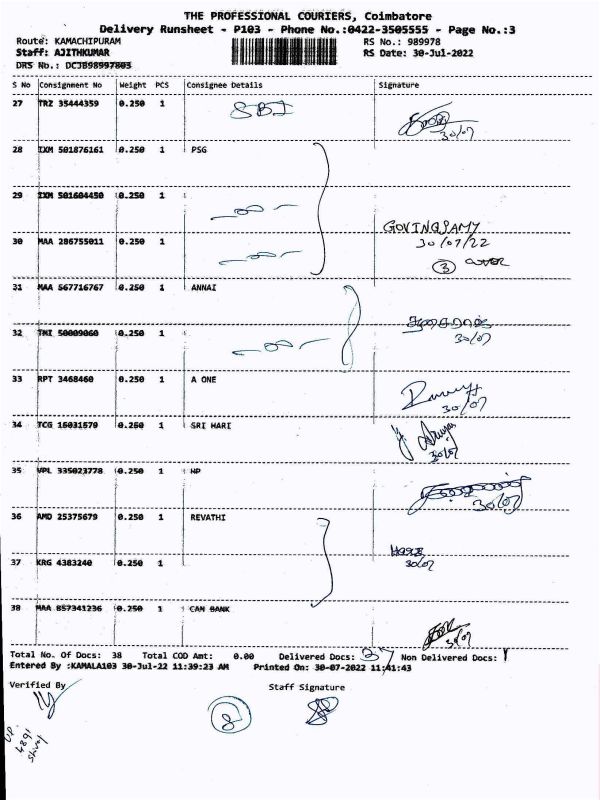 THE PROFESSIONAL COURIERS, Coimbatore
Delivery Runsheet - P103 - Phone No.:0422-3505555 - Page No.:3
Route: KAMACHIPURAM RS No.: 989978
Staff: AJITHKUMAR RS Date: 30-Jul-2022
DRS No.: DCJB98997803
S No Consignment No Weight PCS Consignee Details Signature
27 TRZ 35444359 0.250 1 SBI
30/07
28 IXM 501876161 0.250 1 PSG
29 IXM 501604450 0.250 1
GOVINDSAMY
30 MAA 286755011 0.250 1 30/07/22
3 cover
31 MAA 567716767 0.250 1 ANNAI
32 TMI 50009060 0.250 1 30/07
33 RPT 3468460 0.250 1 A ONE
30/07
34 TCG 15031579 0.250 1 SRI HARI
30/07
35 VPL 335023778 0.250 1 HP
30/07
36 AMD 25375679 0.250 1 REVATHI
37 KRG 4383240 0.250 1 30/07
38 MAA 857341236 0.250 1 CAN BANK
30/07
Total No. Of Docs: 38 Total COD Amt: 0.00 Delivered Docs: 37 Non Delivered Docs: 1
Entered By :KAMALA103 30-Jul-22 11:39:23 AM Printed On: 30-07-2022 11:41:43
Verified By Staff Signature
8
4891